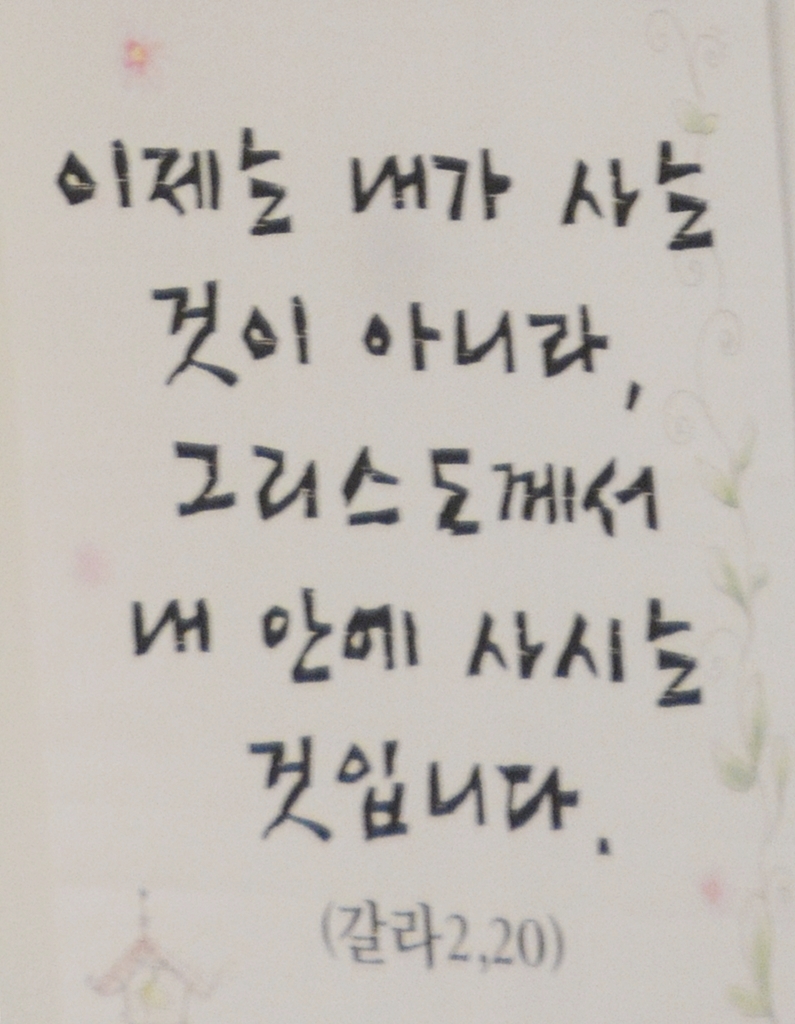 이제는 내가 사는
것이 아니라,
그리스도께서
내 안에 사시는
것입니다.
(갈라2,20)